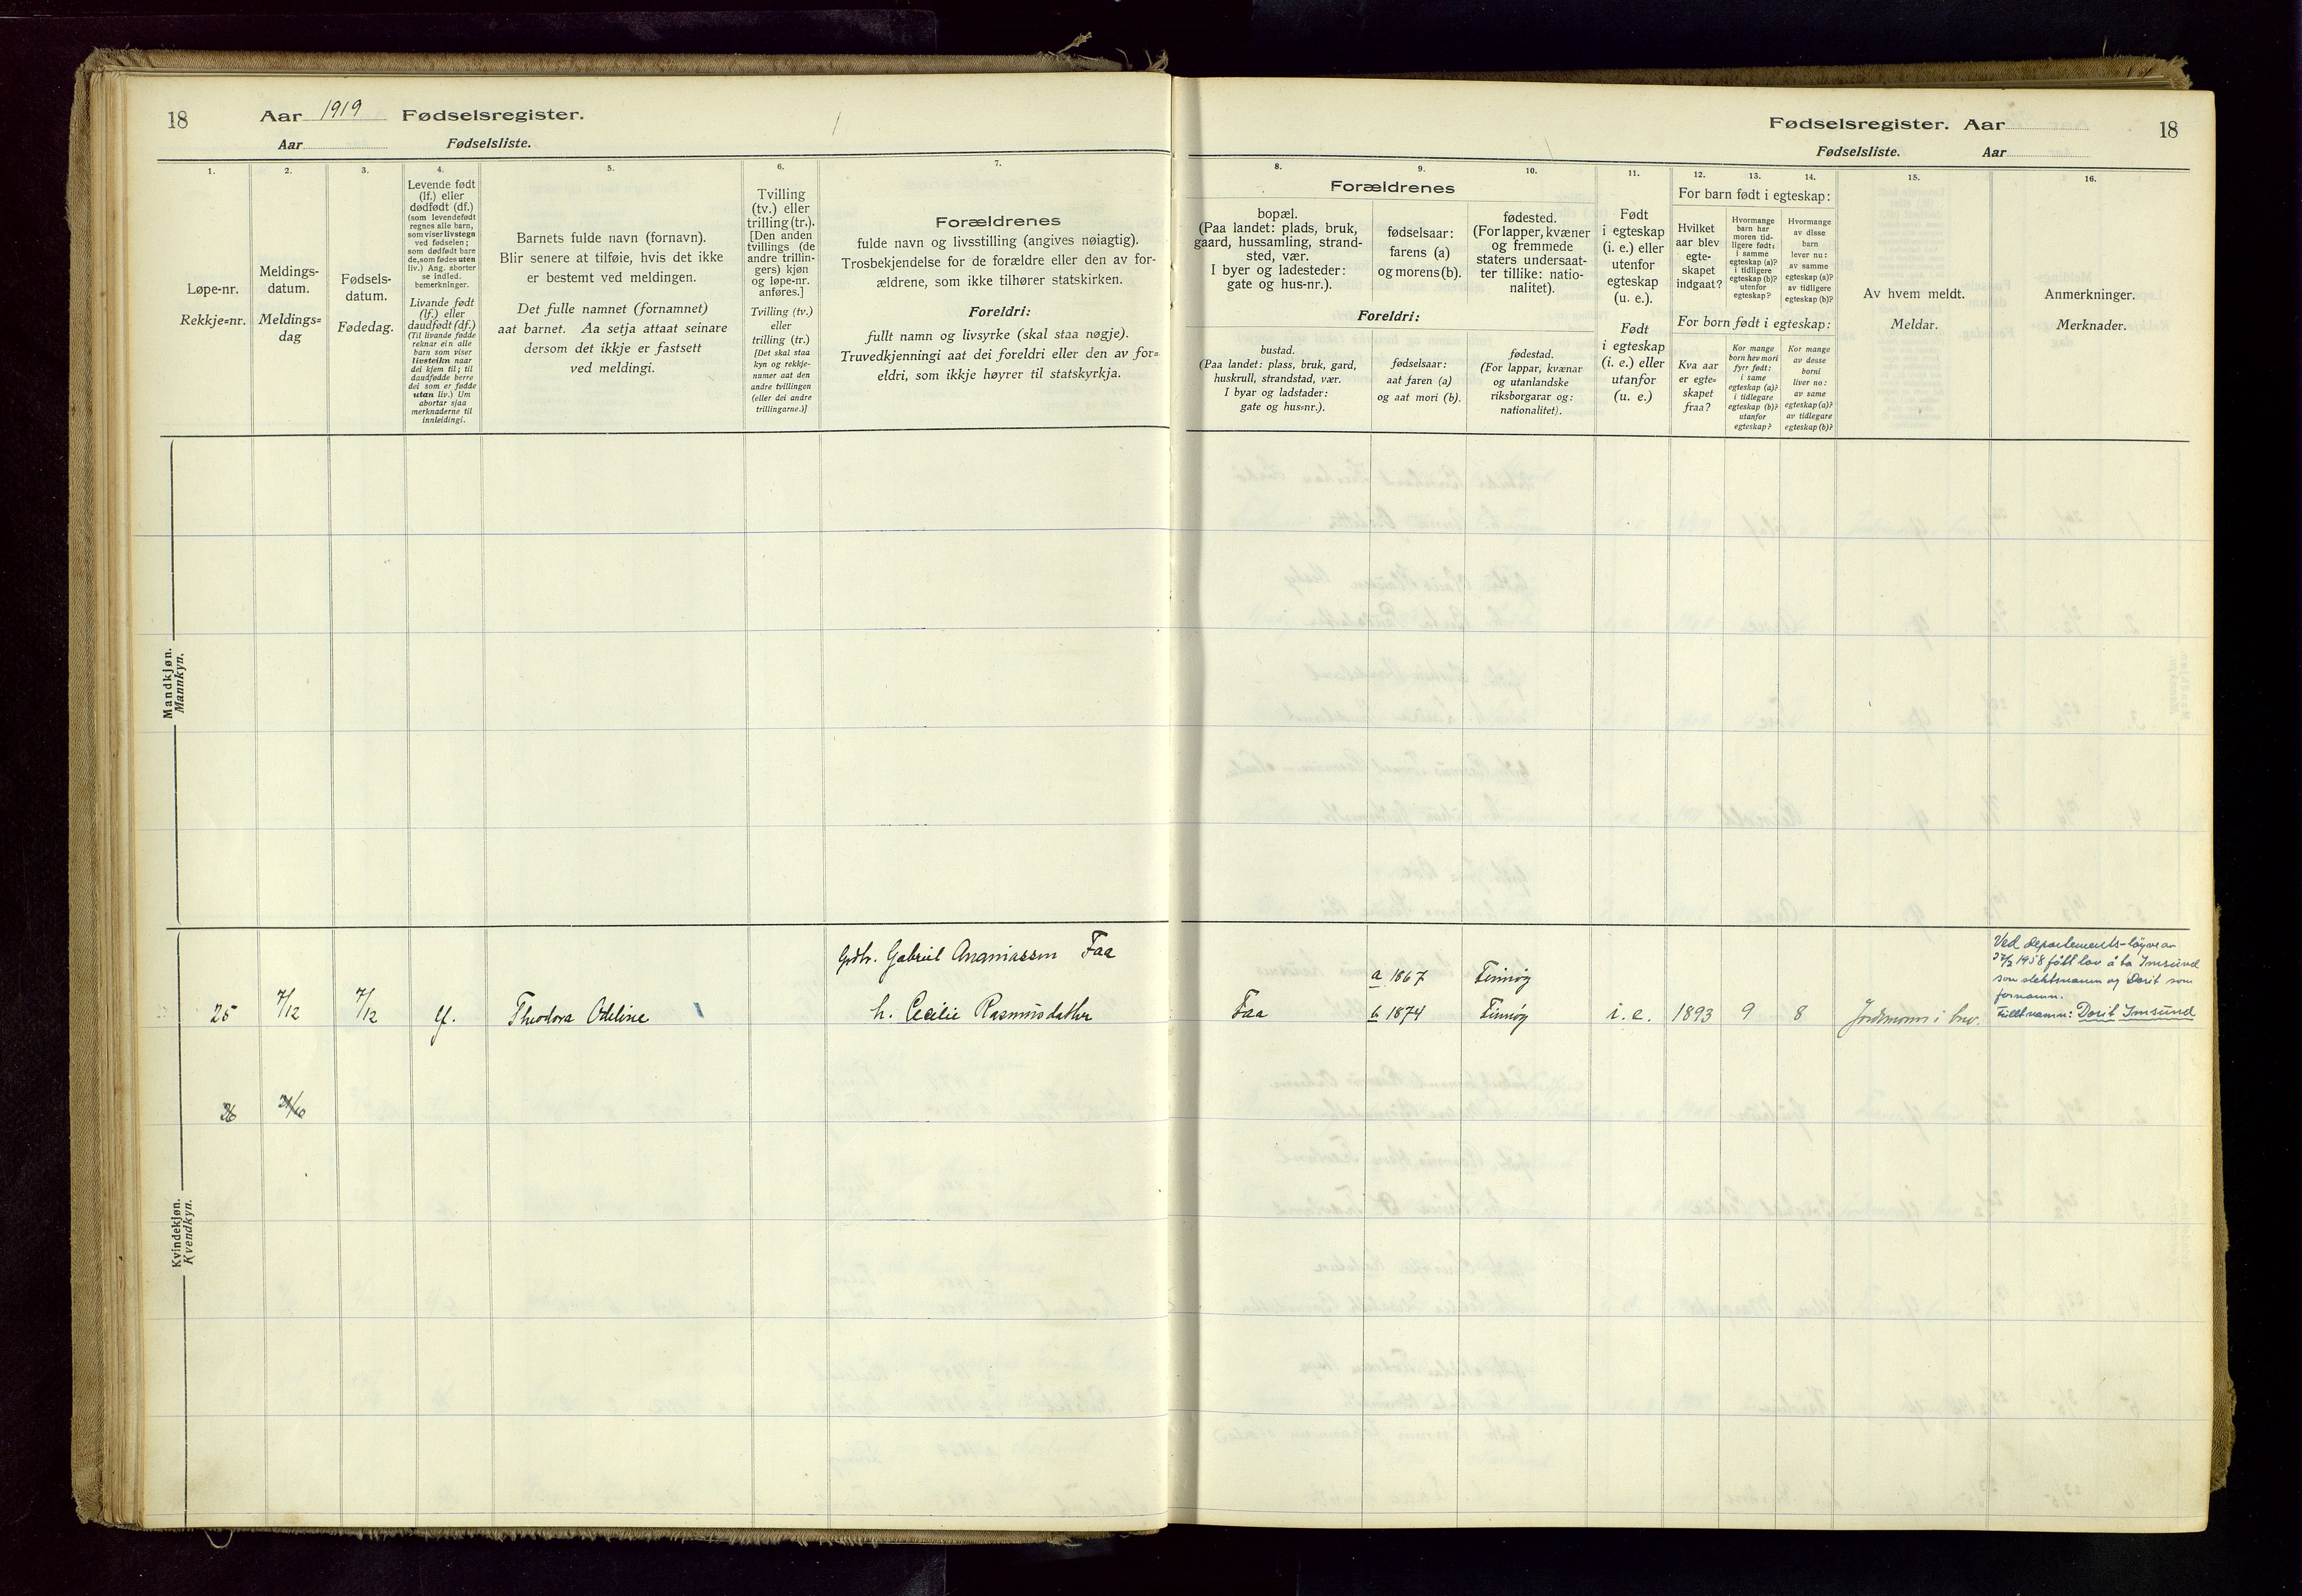 18
Aar 1919 Fødselsregister.
Aar Fødselsliste.
1.
Løpe-nr.
Rekkje=nr.
2.
Meldings-
datum.
Meldings=
dag
3.
Fødsels-
datum.
Fødedag.
4.
Levende født
(lf.) eller
dødfødt (df.)
(som levendefødt
regnes alle barn,
som viser livstegn
ved fødselen;
som dødfødt bare
de, som fødes uten
liv.) Ang. aborter
se indled.
bemerkninger.
Livande født
(lf.) eller
daudfødt (df.)
(Til livande fødde
reknar ein alle
barn som viser
livsteikn naar
dei kjem til; til
daudfødde berre
dei som er fødde
utan liv.) Um
abortar sjaa
merknaderne til
innleidingi.
5.
Barnets fulde navn (fornavn).
Blir senere at tilføie, hvis det ikke
er bestemt ved meldingen.
Det fulle namnet (fornamnet)
aat barnet. Aa setja attaat seinare
dersom det ikkje er fastsett
ved meldingi.
6.
Tvilling
(tv.) eller
trilling (tr.).
[Den anden
tvillings (de
andre trillin-
gers) kjøn
og løpe-nr.
anføres.]
Tvilling (tv.)
eller
trilling (tr.)
[Det skal staa
kyn og rekkje-
numer aat den
andre tvillingen
(eller dei andre
trillingarne.)]
7.
Forældrenes
fulde navn og livsstilling (angives nøiagtig).
Trosbekjendelse for de forældre eller den av for-
ældrene, som ikke tilhører statskirken.
Foreldri:
fullt namn og livsyrke (skal staa nøgje).
Truvedkjenningi aat dei foreldri eller den av for=
eldri, som ikkje høyrer til statskyrkja.
Mandkjøn.
Mannkyn.
Kvindekjøn.
Kvendkyn.
Fødselsregister. Aar
18
Fødselsliste. Aar
8.
Forældrenes
bopæl.
(Paa landet: plads, bruk,
gaard, hussamling, strand-
sted, vær.
I byer og ladesteder:
gate og hus-nr.).
9.
fødselsaar:
farens (a)
og morens (b).
10.
fødested.
(For lapper, kvæner
og fremmede
staters undersaat-
ter tillike: natio-
nalitet).
Foreldri:
bustad.
(Paa landet: plass, bruk, gard,
huskrull, strandstad, vær.
I byar og ladstader:
gate og hus=nr.).
fødselsaar:
aat faren (a)
og aat mori (b).
fødestad.
(For lappar, kvænar
og utanlandske
riksborgarar og:
nationalitet).
11.
Født
i egteskap
(i. e.) eller
utenfor
egteskap
(u. e.).
Født
i egteskap
(i. e.) eller
utanfor
(u. e.)
12.
13.
14.
For barn født i egteskap:
Hvilket
aar blev
egte-
skapet
indgaat?
Hvormange
barn har
moren tid-
ligere født:
i samme
egteskap (a)?
i tidligere
egteskap (b)?
utenfor
egteskap?
Hvormange
av disse
barn
lever nu:
av samme
egteskap (a)?
av tidligere
egteskap (b)?
For born født i egteskap:
Kva aar
er egte=
skapet
fraa?
Kor mange
born hev mori
fyrr født:
i same
egteskap (a)?
i tidlegare
egteskap (b)?
utanfor
egteskap?
Kor mange
av desse
borni
liver no:
av same
egteskap (a)?
av tidlegare
egteskap (b)?
15.
Av hvem meldt.
Meldar.
16.
Anmerkninger.
Merknader.
25 7/12 7/12 lf. Theodora Odeline
Grdbr. Gabriel Ananiassen Faa
h. Cecilie Rasmusdatter
Faa
a 1867 Finnøy
b 1874 Finnøy
i. e. 1893 9 8 Jordmoren i brev.
Ved departements-løyve av
27/2 1958 fått lov å ta Imsund
som slektsnamn og Dorit som
fornamn.
Fullt namn: Dorit Imsund
26